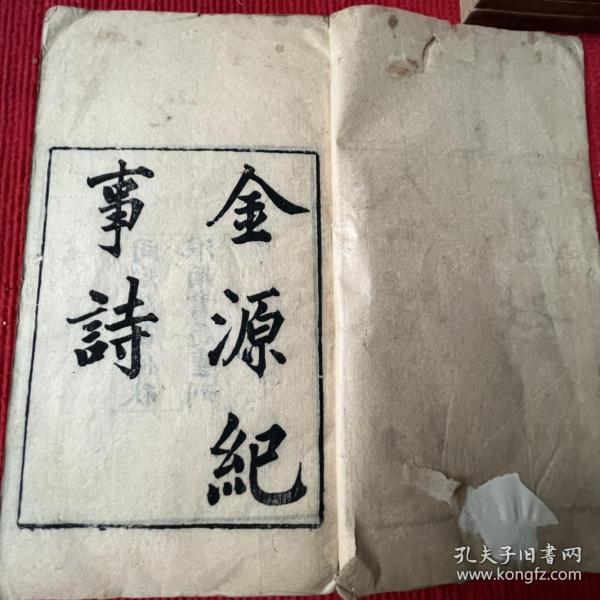 金源紀
事詩
孔夫子旧書网
www.kongfz.com